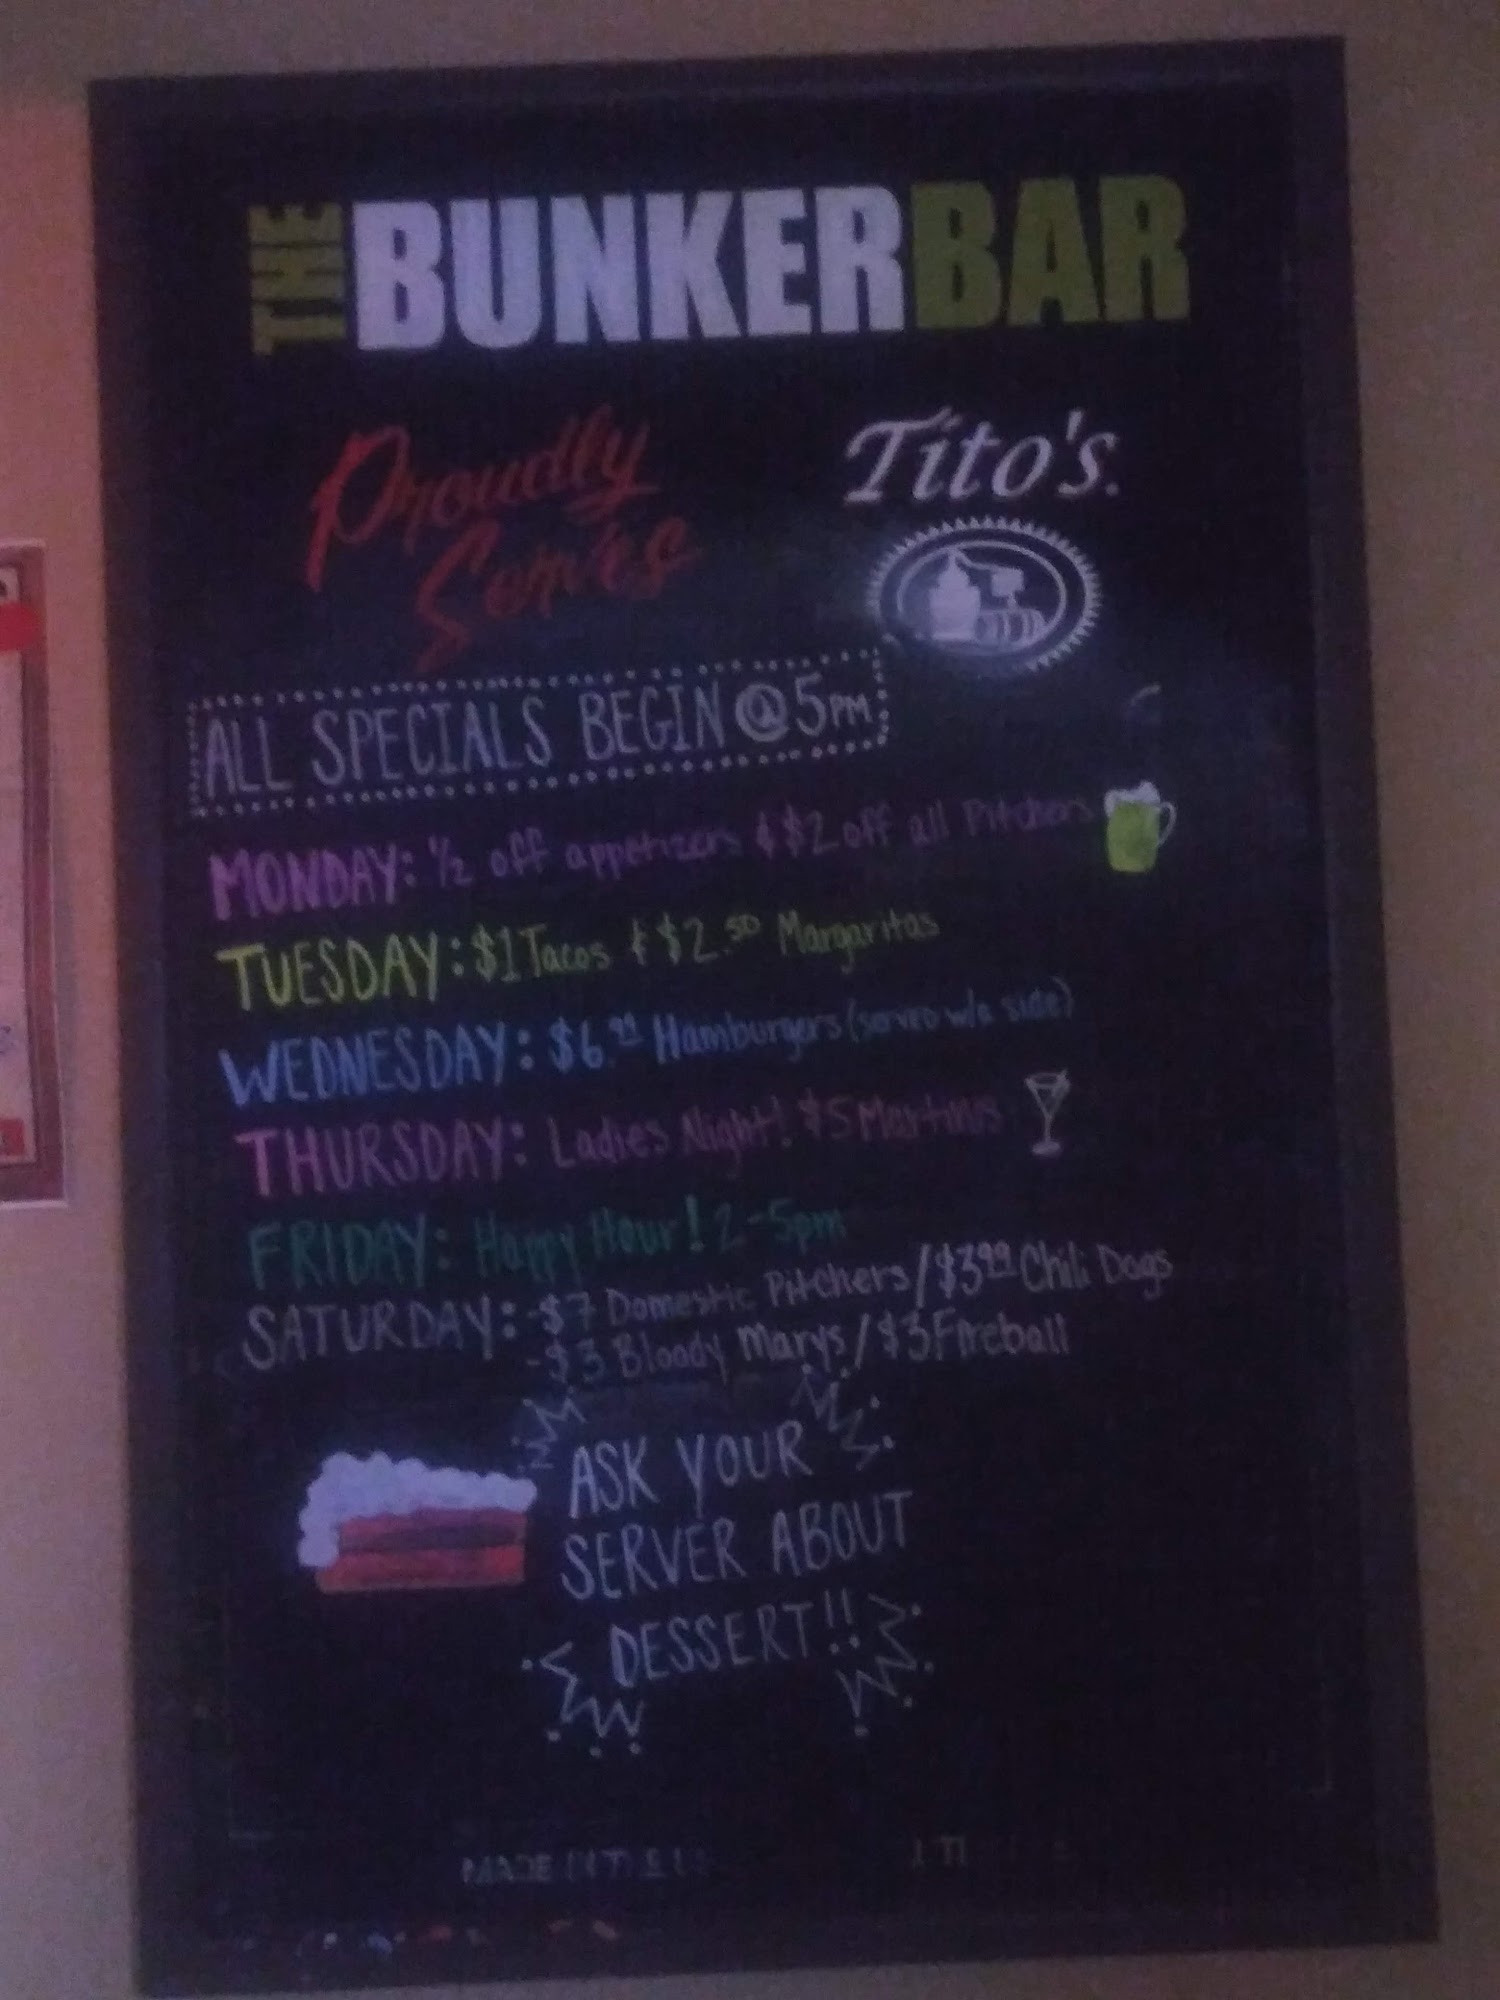 THE BUNKERBAR
Proudly
Serves
Tito's.
ALL SPECIALS BEGIN @ 5PM
MONDAY: ½ off appetizers & $2 off all Pitchers
TUESDAY: $1 Tacos & $2.50 Margaritas
WEDNESDAY: $6.99 Hamburgers (served w/a side)
THURSDAY: Ladies Night! $5 Martinis
FRIDAY: Happy Hour! 2-5pm
SATURDAY: -$7 Domestic Pitchers / $3.99 Chili Dogs
-$3 Bloody Marys / $3 Fireball
ASK YOUR
SERVER ABOUT
DESSERT!!
MADE IN